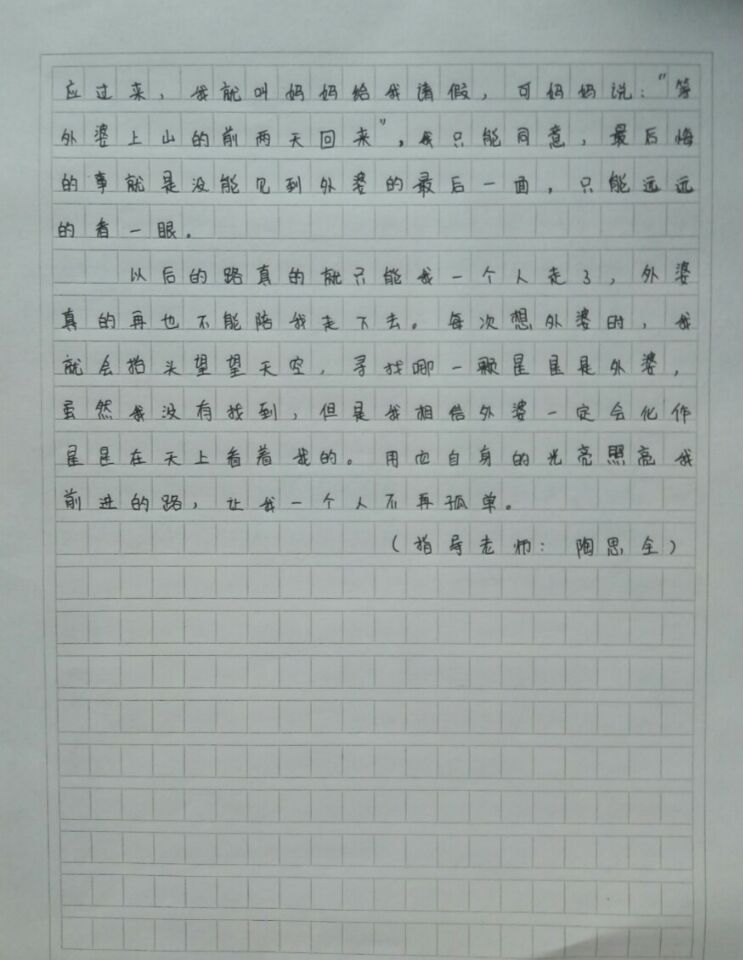 应过来，我就叫妈妈给我请假，可妈妈说："等
外婆上山的前两天回来"，我只能同意，最后悔
的事就是没能见到外婆的最后一面，只能远远
的看一眼。
以后的路真的就只能我一个人走了，外婆
真的再也不能陪我走下去。每次想外婆时，我
就会抬头望望天空，寻找哪一颗星星是外婆，
虽然我没有找到，但是我相信外婆一定会化作
星星在天上看着我的。用它自身的光亮照亮我
前进的路，让我一个人不再孤单。
（指导老师：陶思全）